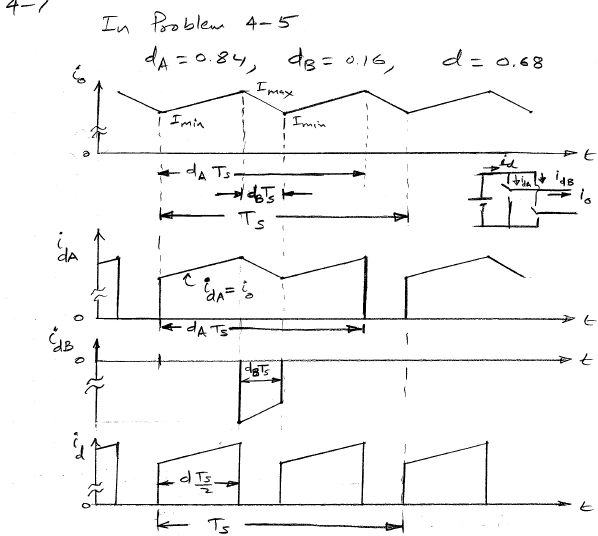 4-7
In Problem 4-5
dA = 0.84, dB = 0.16, d = 0.68
io
Imax
Imin
Imin
0
t
dA Ts
dB Ts
Ts
id
idA
idB
io
idA
idA = io
0
t
dA Ts
idB
0
t
dB Ts
id
d Ts/2
0
t
Ts